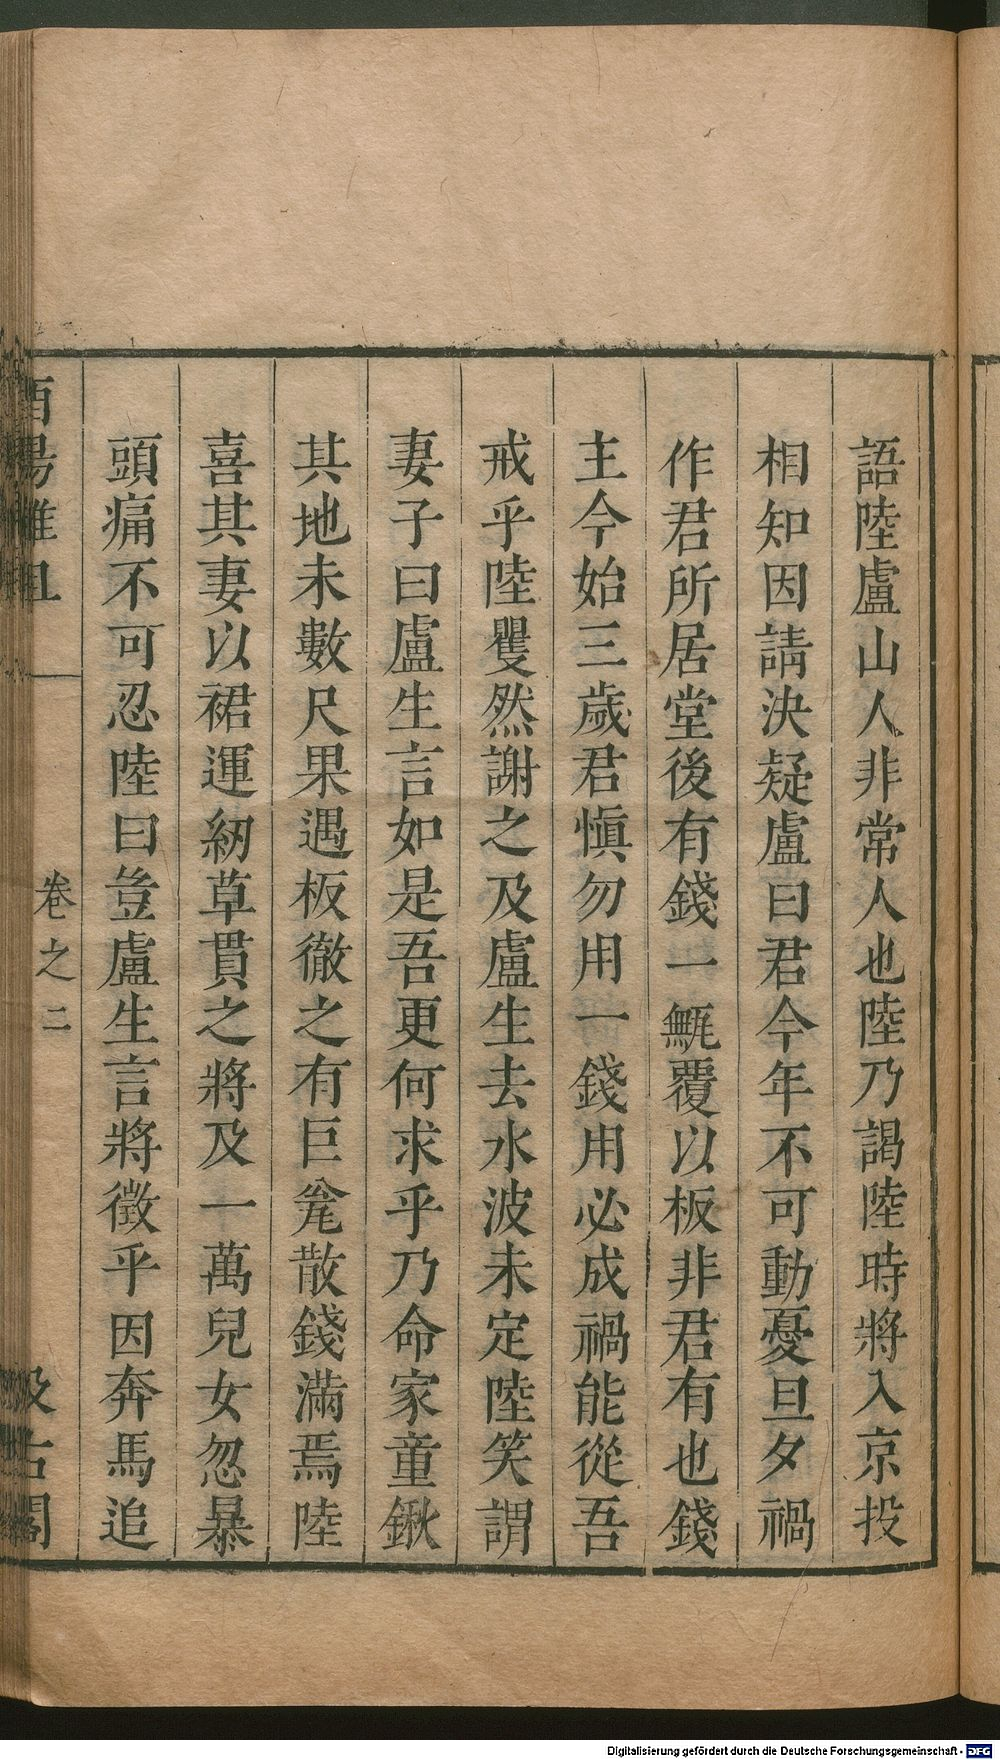 語陸盧山人非常人也陸乃謁陸時將入京投
相知因請決疑盧曰君今年不可動憂旦夕禍
作君所居堂後有錢一甒覆以板非君有也錢
主今始三歲君愼勿用一錢用必成禍能從吾
戒乎陸矍然謝之及盧生去水波未定陸笑謂
妻子曰盧生言如是吾更何求乎乃命家童鍬
其地未數尺果遇板徹之有巨瓮散錢滿焉陸
喜其妻以裙運紉草貫之將及一萬兒女忽暴
頭痛不可忍陸曰豈盧生言將徵乎因奔馬追
酉陽雜俎
卷之二
汲古閣
Digitalisierung gefördert durch die Deutsche Forschungsgemeinschaft - DFG